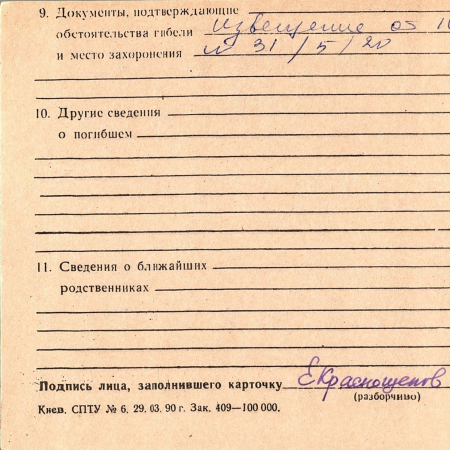 9. Документы, подтверждающие
обстоятельства гибели извещение об
и место захоронения № 31/5/20
10. Другие сведения
о погибшем
11. Сведения о ближайших
родственниках
Подпись лица, заполнившего карточку Е Краснощеков
(разборчиво)
Киев. СПТУ № 6. 29. 03. 90 г. Зак. 409—100 000.